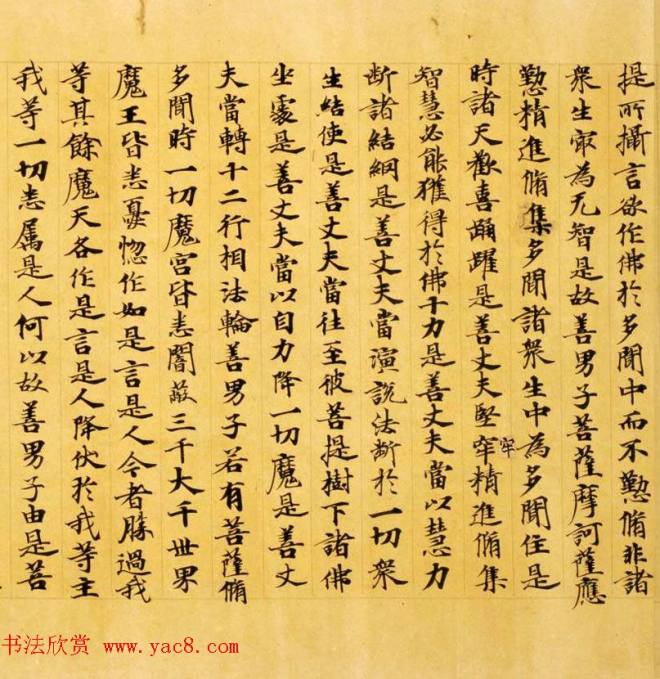 提所攝言欲作佛於多聞中而不懃脩非諸
衆生㝡為无智是故善男子菩薩摩訶薩應
懃精進脩集多聞諸衆生中為多聞住是
時諸天歡喜踊躍是善丈夫堅牢精進脩集
牢
智慧必能獲得於佛十力是善丈夫當以慧力
断諸結網是善丈夫當演説法断於一切衆
生結使是善丈夫當往至彼菩提樹下諸佛
坐處是善丈夫當以自力降一切魔是善丈
夫當轉十二行相法輪善男子若有菩薩脩
多聞時一切魔宫皆悉闇蔽三千大千世界
魔王皆悉憂惱作如是言是人今者勝過我
等其餘魔天各作是言是人降伏於我等主
我等一切悉属是人何以故善男子由是菩
书法欣赏 www.yac8.com